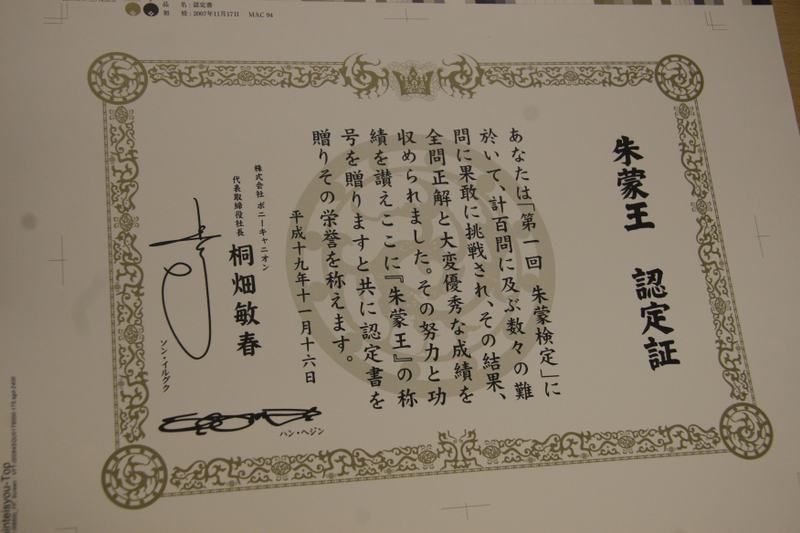 品 名：認定書
初 校：2007年11月17日 MAC 94
朱蒙王 認定証
あなたは「第一回 朱蒙検定」に
於いて、計百問に及ぶ数々の難
問に果敢に挑戦され、その結果、
全問正解と大変優秀な成績を
収められました。その努力と功
績を讃えここに『朱蒙王』の称
号を贈りますと共に認定書を
贈りその栄誉を称えます。
平成十九年十一月十六日
株式会社 ポニーキャニオン
代表取締役社長
桐畑敏春
ソン・イルグク
ハン・ヘジン
ninteisyou-Top